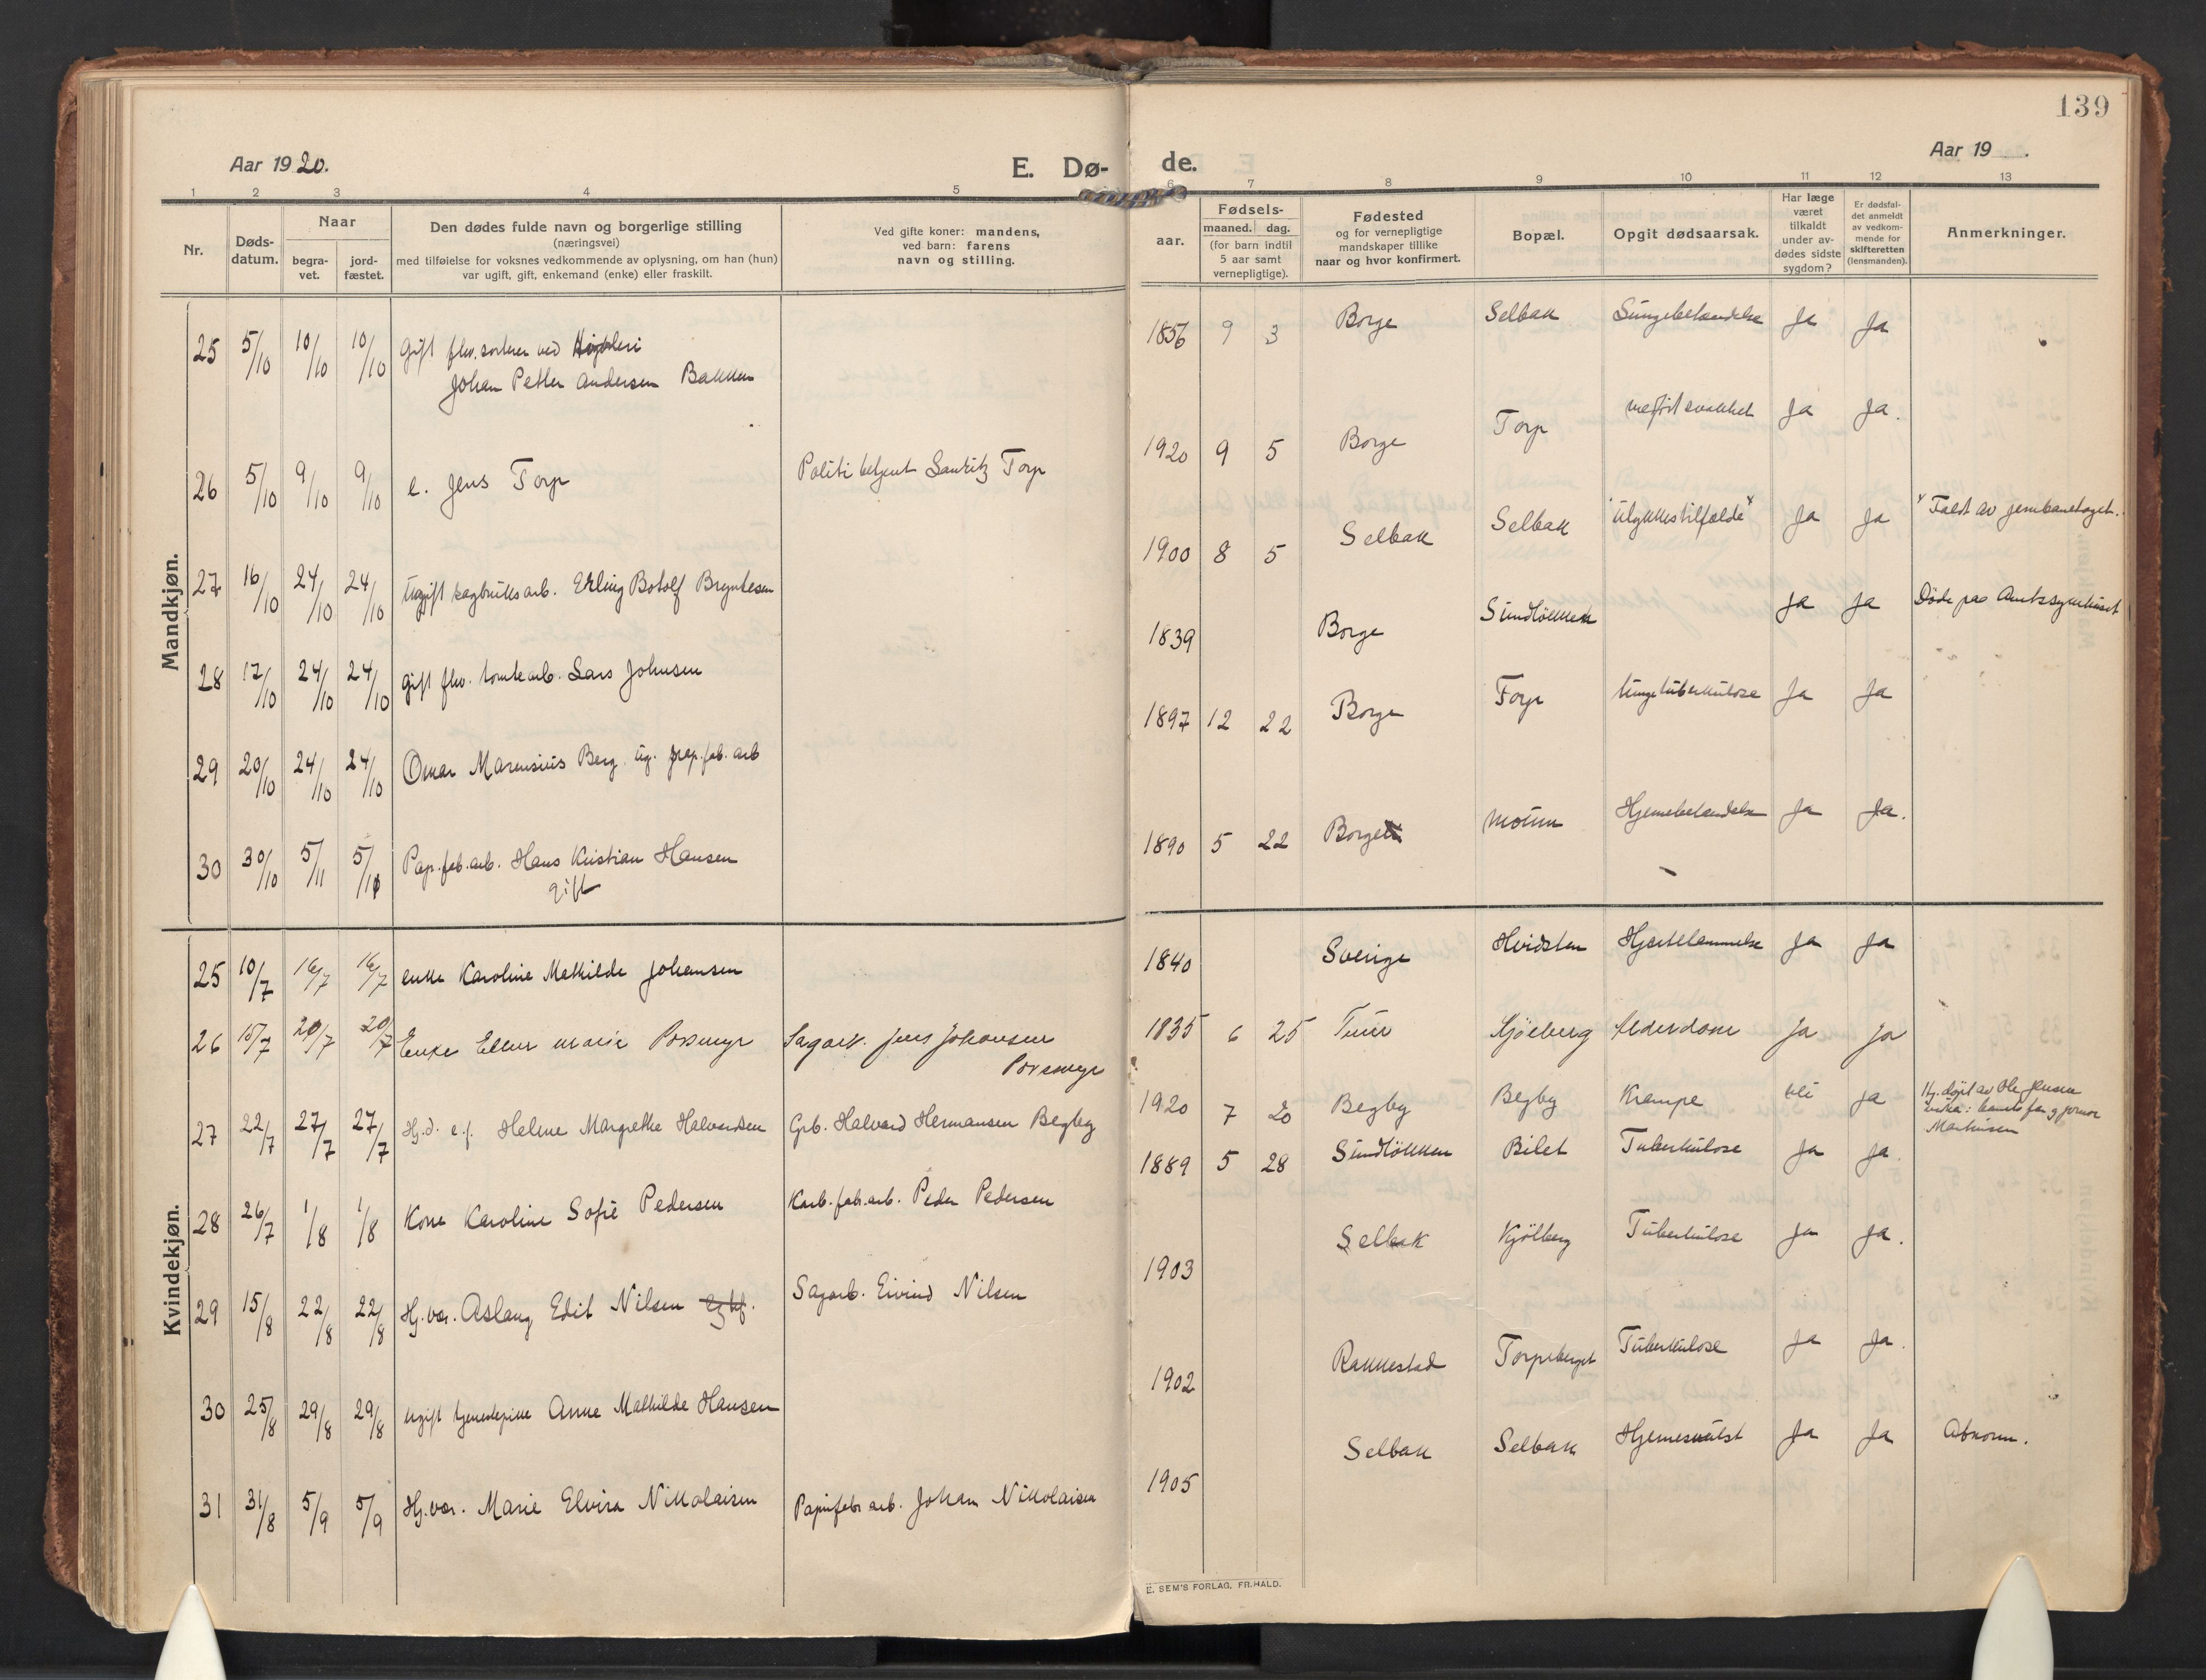 139
Aar 1920.
E. Dø-
de.
Aar 19 .
1 2 3 4 5 6 7 8 9 10 11 12 13
Nr.
Døds-
datum.
Naar
begra-
vet.
jord-
fæstet.
Den dødes fulde navn og borgerlige stilling
(næringsvei)
med tilføielse for voksnes vedkommende av oplysning, om han (hun)
var ugift, gift, enkemand (enke) eller fraskilt.
Ved gifte koner: mandens,
ved barn: farens
navn og stilling.
aar.
Fødsels-
maaned. dag.
(for barn indtil
5 aar samt
vernepligtige).
Fødested
og for vernepligtige
mandskaper tillike
naar og hvor konfirmert.
Bopæl.
Opgit dødsaarsak.
Har læge
været
tilkaldt
under av-
dødes sidste
sygdom?
Er dødsfal-
det anmeldt
av vedkom-
mende for
skifteretten
(lensmanden).
Anmerkninger.
Mandkjøn.
25 5/10 10/10 10/10 Gift flv. sorterer ved
Johan Petter Andersen Bakken
1856 9 3 Borge Selbak Lungebetændelse Ja Ja
26 5/10 9/10 9/10 e. Jens Torp Politibetjent Lauritz Torp 1920 9 5 Borge Torp medfødt svakhet Ja Ja.
27 16/10 24/10 24/10 Ugift sagbruksarb. Erling Botolf Bryntesen 1900 8 5 Selbak Selbak Ulykkestilfælde Ja Ja Faldt av jernbanetoget.
28 17/10 24/10 24/10 gift flv. tomtearb. Lars Johnsen 1839 Borge Sundløkken Ja Ja Døde paa Amtssykehuset
29 20/10 24/10 24/10 Omar Marensius Berg ug. pap. fab. arb 1897 12 22 Borge Torp Lungetuberkulose Ja Ja
30 30/10 5/11 5/11 Pap. fab. arb. Hans Kristian Hansen
gift
1890 5 22 Borge Moum Hjernebetændelse Ja Ja.
Kvindekjøn.
25 10/7 16/7 16/7 enke Karoline Mathilde Johansen 1840 Sverige Hvidsten Hjertelammelse Ja Ja
26 15/7 20/7 20/7 Enke Ellen Marie Porsmyr Sagarb. Jens Johansen
Porsmyr
1835 6 25 Tune Kjølberg Alderdom Ja Ja
27 22/7 27/7 27/7 Hj.d. e.f. Helene Margrethe Halvardsen Grb. Halvard Hermansen Begby 1920 7 20 Begby Begby Krampe Nei Ja Hj. døpt av Ole Jensen
28 26/7 1/8 1/8 Kone Karoline Sofie Pedersen Karb. fab. arb. Peder Pedersen 1889 5 28 Sundløkken Bilet Tuberkulose Ja Ja.
29 15/8 22/8 22/8 Hj.vær. Aslaug Edit Nilsen Sagarb. Eivind Nilsen 1903 Selbak Kjølberg Tuberkulose Ja Ja.
30 25/8 29/8 29/8 Ugift tjenestepike Anne Mathilde Hansen 1902 Rakkestad Torpeberget Tuberkulose Ja Ja.
31 31/8 5/9 5/9 Hj.vær. Marie Elvira Nikolaisen Papirfabr arb. Johan Nikolaisen 1905 Selbak Selbak Hjernesvulst Ja Ja Abnorm.
E. SEM'S FORLAG, FR.HALD.